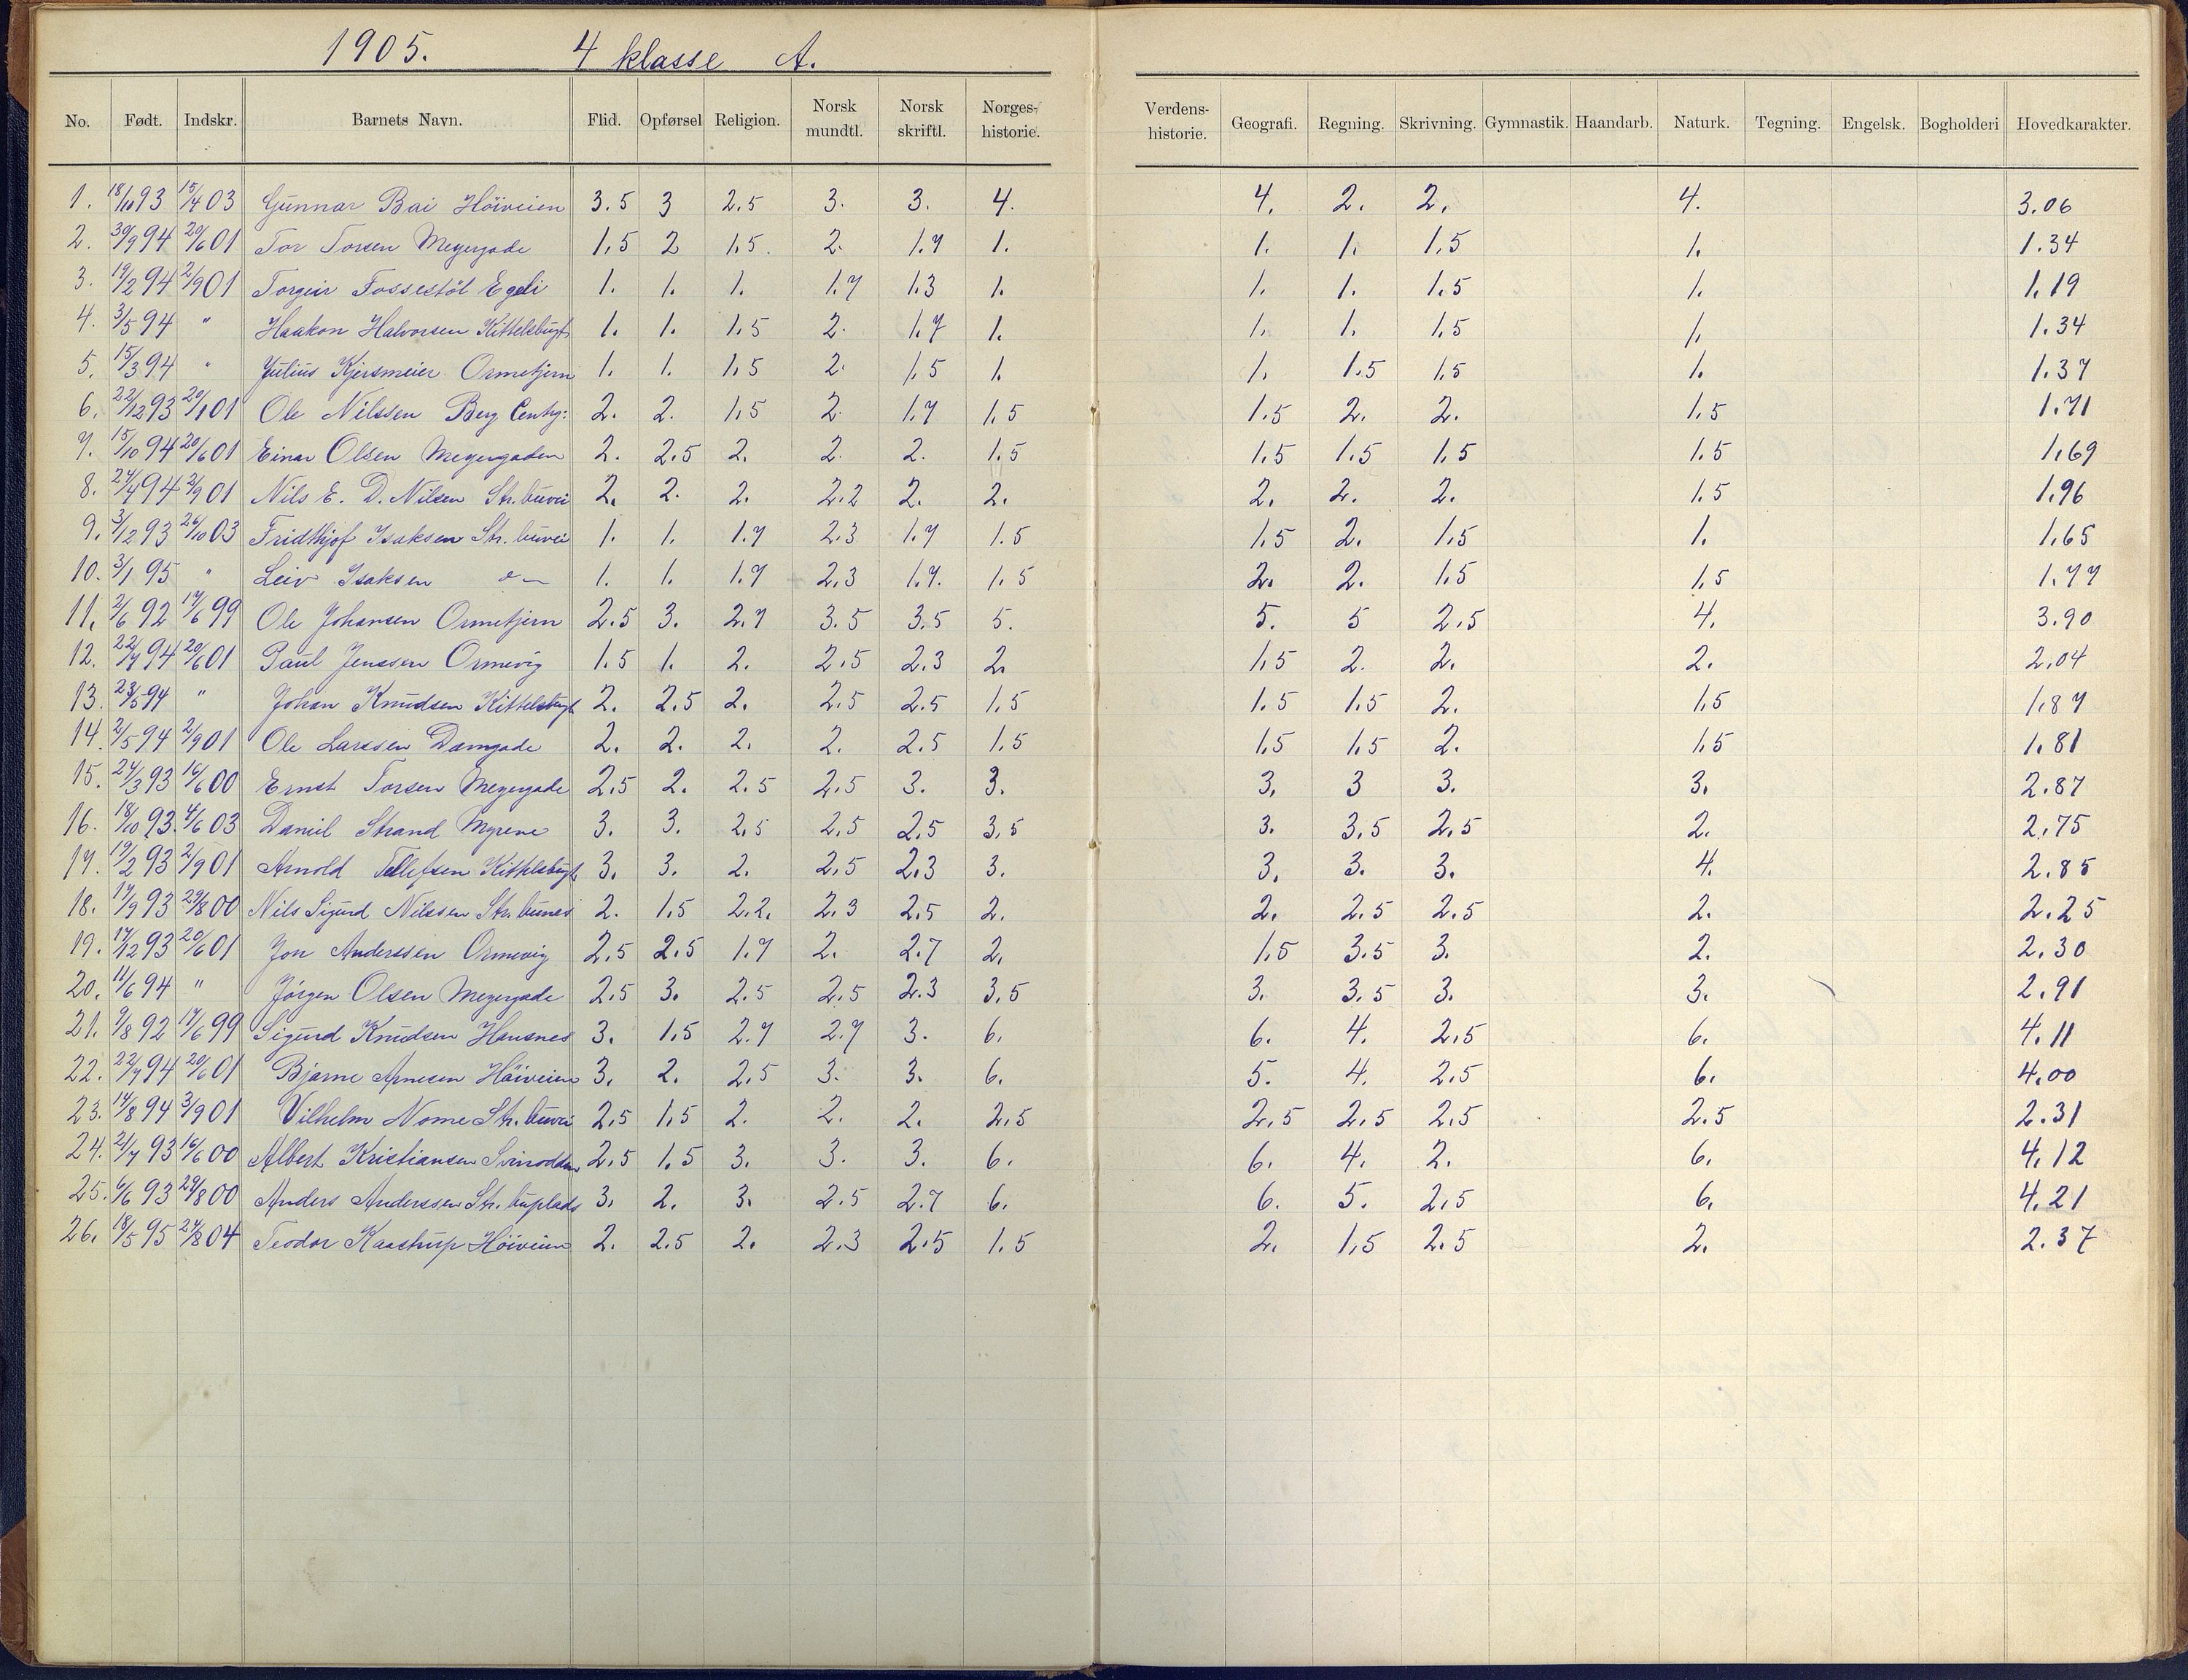 1905. 4 klasse A.
No. Født. Indskr. Barnets Navn. Flid. Opførsel Religion. Norsk mundtl. Norsk skriftl. Norges-historie. Verdens-historie. Geografi. Regning. Skrivning. Gymnastik. Haandarb. Naturk. Tegning. Engelsk. Bogholderi Hovedkarakter.
1. 18/10 93 15/4 03 Gunnar Bai Höiveien 3.5 3 2.5 3. 3. 4. 4. 2. 2. 4. 3.06
2. 30/9 94 20/6 01 Tor Torsen Meyergade 1,5 2 1,5. 2. 1.7 1. 1. 1. 1,5 1. 1.34
3. 19/2 94 2/9 01 Torgeir Fossestöl Egeli 1. 1. 1. 1.7 1.3 1. 1. 1. 1.5 1. 1.19
4. 3/5 94 " Haakon Halvorsen Kittelsbugt 1. 1. 1.5 2. 1.7 1. 1. 1. 1,5 1. 1.34
5. 15/3 94 " Julius Kjersmeier Ormetjern 1. 1. 1.5 2. 1.5 1. 1. 1.5 1.5 1. 1.37
6. 22/12 93 Ole Nilssen Berg 2. 2. 1.5 2. 1.7 1,5 1.5 2. 2. 1.5 1.71
7. 15/10 94 20/6 01 Einar Olsen Meyergaden 2. 2.5 2. 2. 2. 1.5 1.5 1.5 1.5 1.5 1.69
8. 94 2/9 01 Nils E. D. Nilsen Str. buvei 2. 2. 2. 2.2 2. 2. 2. 2. 2. 1.5 1.96
9. 3/12 93 26/10 03 Fridthjof Isaksen Str. buvei 1. 1. 1.7 2.3 1.7 1.5 1.5 2. 1.5 1. 1.65
10. 3/1 95 " Leiv Isaksen 1. 1. 1.7 2,3 1.7. 1.5 2. 2. 1.5 1.5 1.77
11. 2/6 92 17/6 99 Ole Johansen Ormetjern 2.5 3. 2.7 3.5 3.5 5. 5. 5 2.5 4. 3.90
12. 22/7 94 20/6 01 Paul Jenssen Ormevig 1.5 1. 2. 2.5 2.3 2. 1.5 2. 2. 2. 2.04
13. 23/5 94 " Johan Knudsen Kittelsbugt 2. 2.5 2. 2.5 2.5 1.5 1.5 1.5 2. 1.5 1.87
14. 2/5 94 2/9 01 Ole Larssen Damgade 2. 2. 2. 2. 2.5 1.5 1.5 1.5 2. 1.5 1.81
15. 24/3 93 16/6 00 Ernst Torsen Meyergade 2.5 2. 2.5 2.5 3. 3. 3. 3 3. 3. 2.87
16. 18/10 93. 4/6 03 Daniel Strand Myrene 3. 3. 2.5 2.5 2.5 3,5 3. 3.5 2.5 2. 2.75
17. 19/2 93 2/9 01 Arnold Tellefsen Kittelsbugt 3. 3. 2. 2.5 2.3 3. 3. 3. 3. 4. 2.85
18. 17/9 93 29/8 00 Nils Sigurd Nilssen 2. 1.5 2.2. 2.3 2.5 2. 2. 2.5 2.5 2. 2.25
19. 17/12 93 20/6 01 Jon Anderssen Ormevig 2.5 2.5 1.7 2. 2.7 2. 1.5 3.5 3. 2. 2.30
20. 11/6 94 " Jörgen Olsen Meyergade 2.5 3. 2.5 2.5 2.3 3,5 3. 3.5 3. 3. 2.91
21. 9/8 92 17/6 99 Sigurd Knudsen Hansnes 3. 1.5 2.7 2.7 3. 6. 6. 4. 2.5 6. 4.11
22. 22/7 94 20/6 01 Bjarne Arnesen Höiveien 3. 2. 2.5 3. 3. 6. 5. 4. 2.5 6. 4.00
23. 14/8 94 3/9 01 Vilhelm Nome Str. buvei 2.5 1.5 2. 2. 2. 2.5 2.5 2.5 2.5 2.5 2.31
24. 2/7 93 16/6 00 Albert Kristiansen Svinodden 2.5 1.5 3. 3. 3. 6. 6. 4. 2. 6. 4.12
25. 6/6 93 29/8 00 Anders Anderssen Str. buplads 3. 2. 3. 2.5 2.7 6. 6. 5. 2.5 6. 4.21
26. 18/5 95 04 Teodor Kaastrup Höiveien 2. 2.5 2. 2.3 2.5 1.5 2. 1.5 2.5 2. 2.37